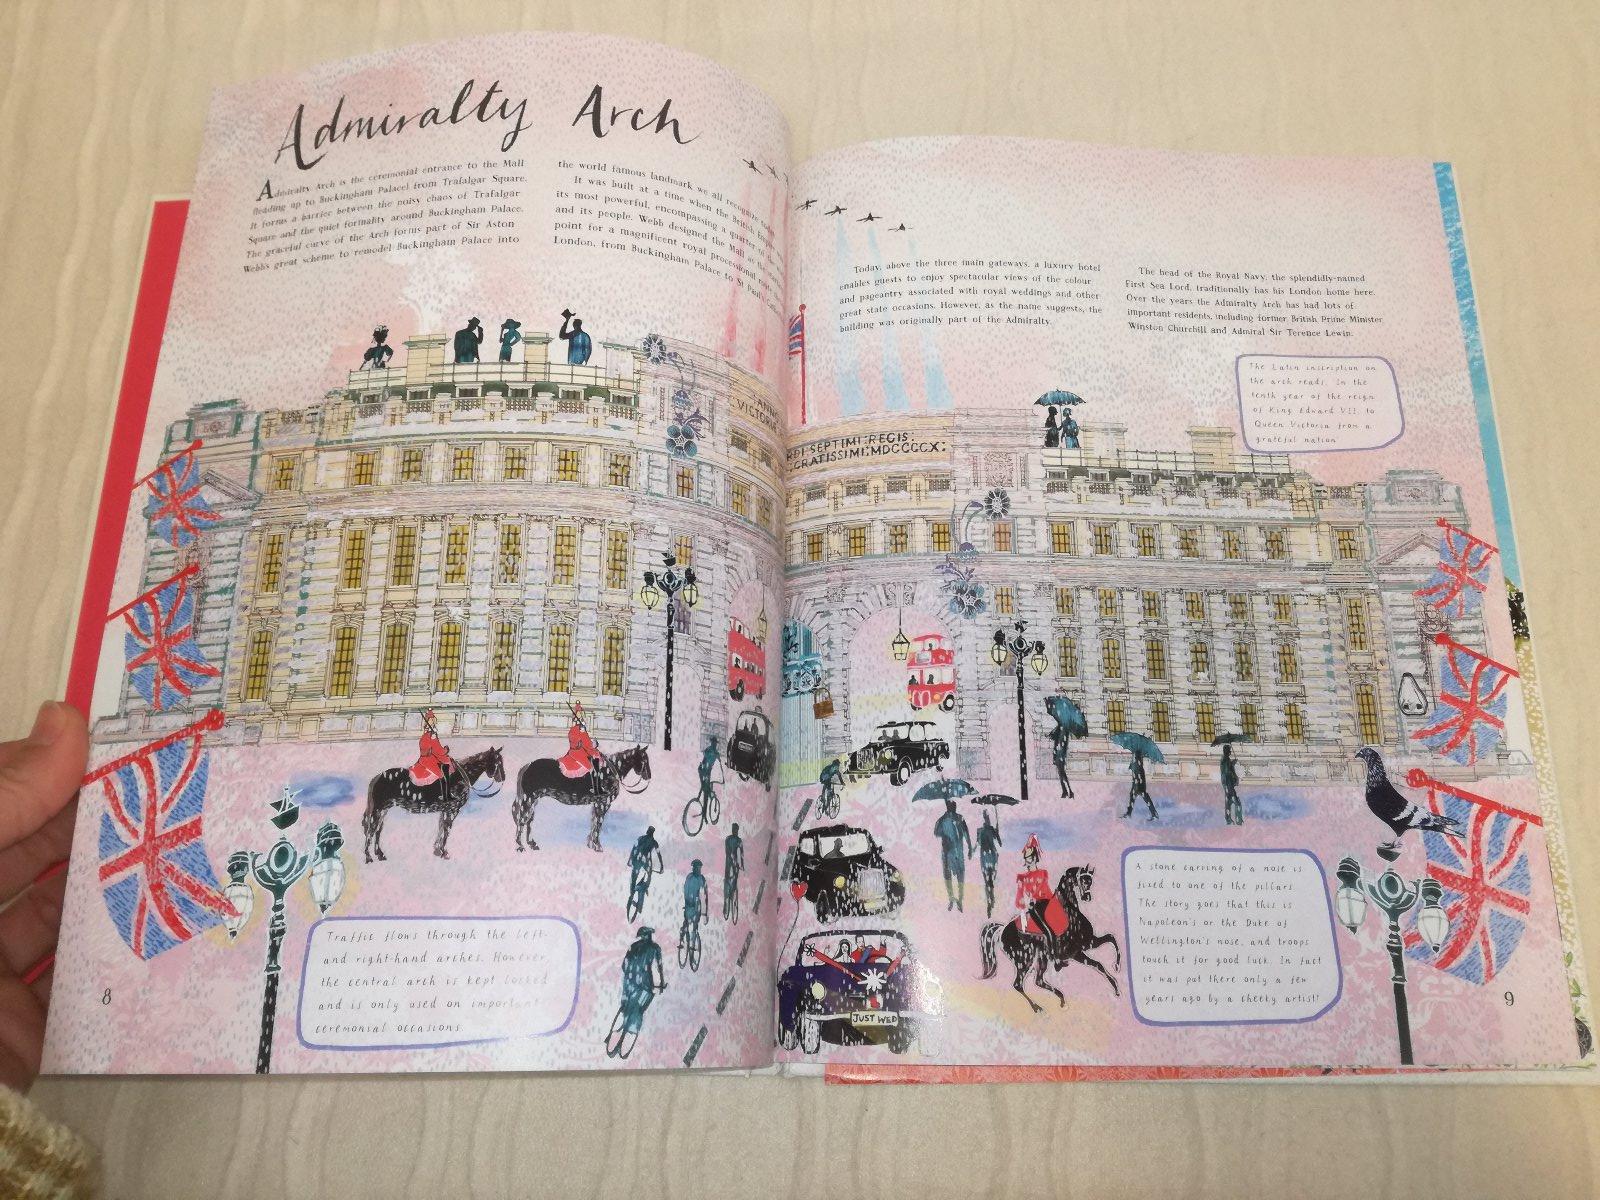 Admiralty Arch
Admiralty Arch is the ceremonial entrance to the Mall
(leading up to Buckingham Palace) from Trafalgar Square.
It forms a barrier between the noisy chaos of Trafalgar
Square and the quiet formality around Buckingham Palace.
The graceful curve of the Arch forms part of Sir Aston
Webb's great scheme to remodel Buckingham Palace into
the world famous landmark we all recognize today.
It was built at a time when the British Empire
its most powerful, encompassing a quarter of the
and its people. Webb designed the Mall as the
point for a magnificent royal processional route
London, from Buckingham Palace to St Paul's
Today, above the three main gateways, a luxury hotel
enables guests to enjoy spectacular views of the colour
and pageantry associated with royal weddings and other
great state occasions. However, as the name suggests, the
building was originally part of the Admiralty.
The head of the Royal Navy, the splendidly-named
First Sea Lord, traditionally has his London home here.
Over the years the Admiralty Arch has had lots of
important residents, including former British Prime Minister
Winston Churchill and Admiral Sir Terence Lewin.
The Latin inscription on
the arch reads: In the
tenth year of the reign
of King Edward VII, to
Queen Victoria from a
grateful nation
:ANNO
VICTORIA
RDI:SEPTIMI:REGIS:
GRATISSIMI:MDCCCCX:
Traffic flows through the left-
and right-hand arches. However,
the central arch is kept locked
and is only used on important
ceremonial occasions.
JUST WED
A stone carving of a nose is
fixed to one of the pillars.
The story goes that this is
Napoleon's or the Duke of
Wellington's nose, and troops
touch it for good luck. In fact
it was put there only a few
years ago by a cheeky artist!
8
9